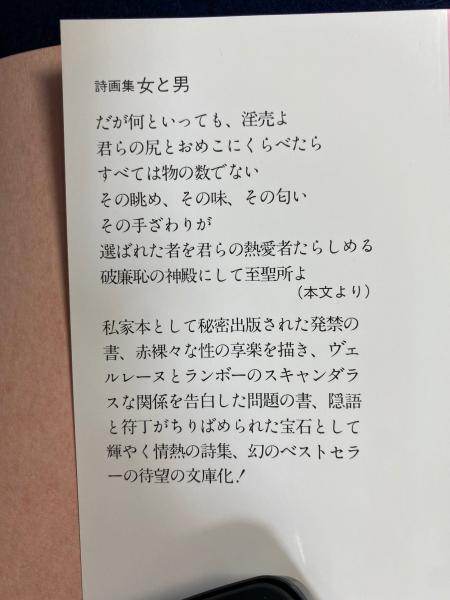 詩画集 女と男
だが何といっても、淫売よ
君らの尻とおめこにくらべたら
すべては物の数でない
その眺め、その味、その匂い
その手ざわりが
選ばれた者を君らの熱愛者たらしめる
破廉恥の神殿にして至聖所よ
(本文より)
私家本として秘密出版された発禁の
書、赤裸々な性の享楽を描き、ヴェ
ルレーヌとランボーのスキャンダラ
スな関係を告白した問題の書、隠語
と符丁がちりばめられた宝石として
輝やく情熱の詩集、幻のベストセラ
ーの待望の文庫化!